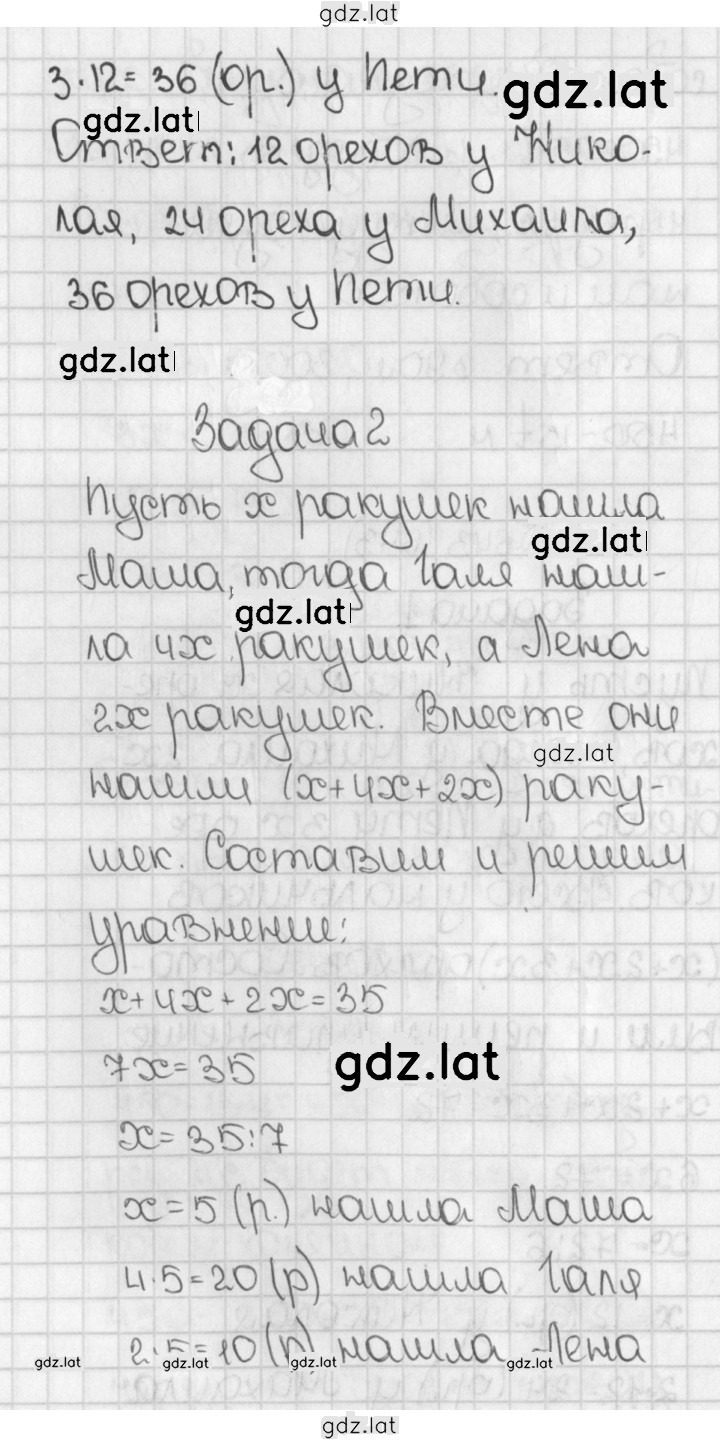 gdz.lat
3·12=36 (ор.) у Пети.
gdz.lat
gdz.lat
Ответ: 12 орехов у Нико-
лая, 24 ореха у Михаила,
36 орехов у Пети.
gdz.lat
Задача 2
Пусть x ракушек нашла
gdz.lat
Маша, тогда Галя наш-
gdz.lat
ла 4x ракушек, а Лена
2x ракушек. Вместе они
gdz.lat
нашли (x+4x+2x) раку-
шек. Составим и решим
уравнение:
x+4x+2x=35
7x=35
gdz.lat
x=35:7
x=5 (р.) нашла Маша
4·5=20 (р) нашла Галя
2·5=10 (р) нашла Лена
gdz.lat gdz.lat gdz.lat gdz.lat
gdz.lat